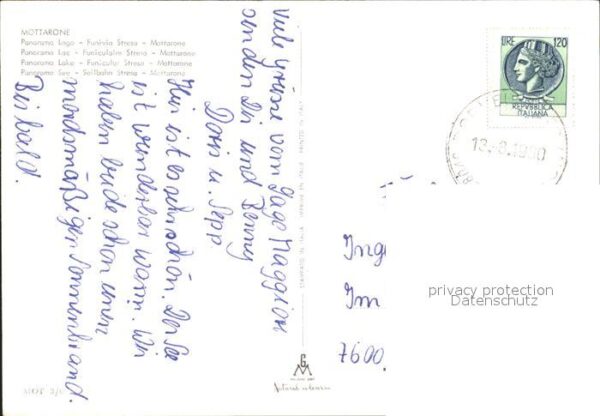 MOTTARONE
Panorama Lago - Funivia Stresa - Mottarone
Panorama Lac - Funiculaire Stresa - Mottarone
Panorama Lake - Funicular Stresa - Mottarone
Panorama See - Seilbahn Stresa - Mottarone
Viele Grüße vom Lago Maggiore
senden Dir und Benny
Doris u. Sepp
Hier ist es sehr schön. Der See
ist wunderbar warm. Wir
haben beide schon einen
mordsmäßigen Sonnenbrand.
Bis bald.
STAMPATO IN ITALIA - IMPRIMÉ EN ITALIE - PRINTED IN ITALY
LIRE 120
REPVBBLICA
ITALIANA
13.-8.1980
Ing
Im
7600
privacy protection
Datenschutz